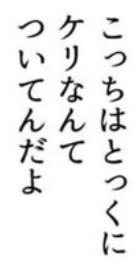 こっちはとっくに
ケリなんて
ついてんだよ